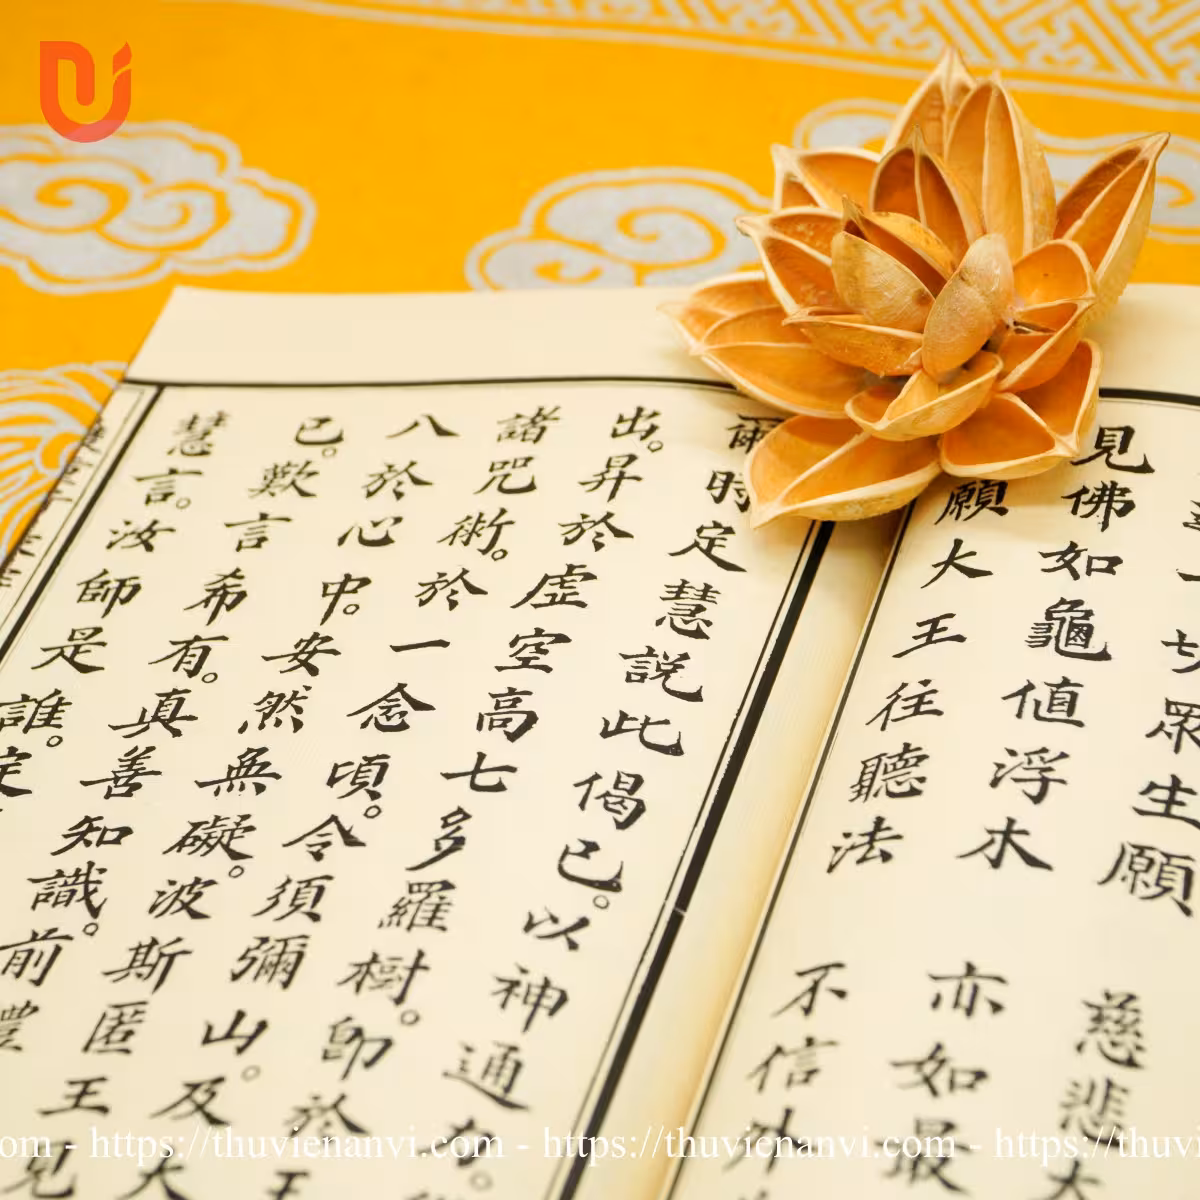 一切眾生願 慈悲大
見佛如龜值浮木 亦如最
願大王往聽法 不信外
爾時定慧說此偈已。以神通力。
出。昇於虛空高七多羅樹。即於王
諸咒術。於一念頃。令須彌山。及大
八於心中。安然無礙。波斯匿王見
已。歎言希有。真善知識。前禮
慧言。汝師是誰。定
https://thuvienanvi.com - https://thuvienanvi.com - https://thuvi